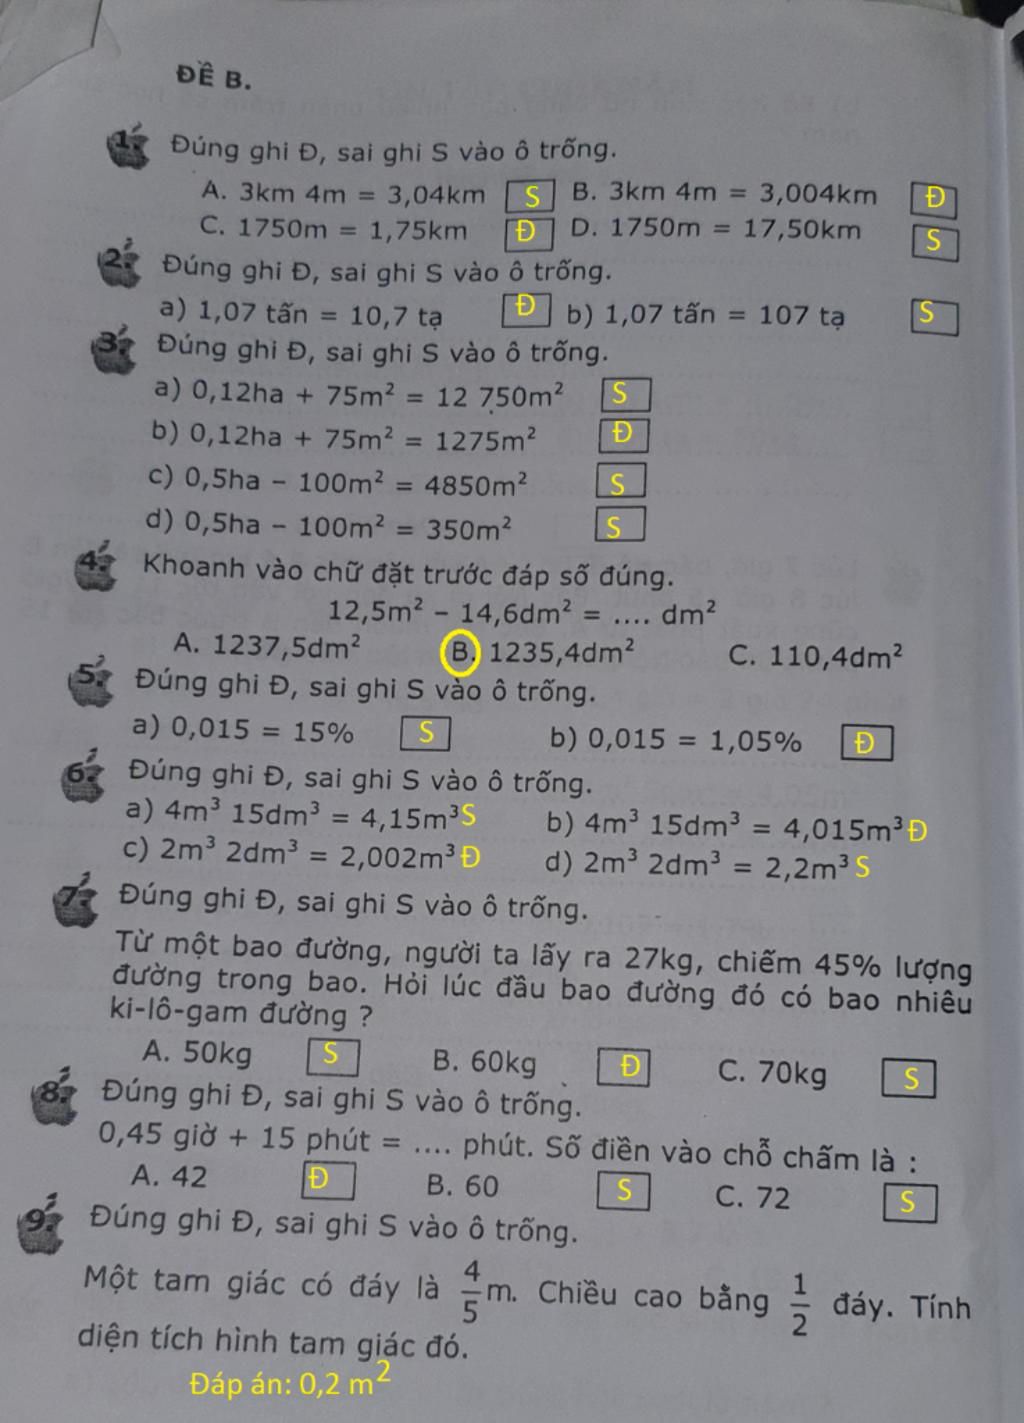 ĐỀ B.
1. Đúng ghi Đ, sai ghi S vào ô trống.
A. 3km 4m = 3,04km S B. 3km 4m = 3,004km Đ
C. 1750m = 1,75km Đ D. 1750m = 17,50km S
2. Đúng ghi Đ, sai ghi S vào ô trống.
a) 1,07 tấn = 10,7 tạ Đ b) 1,07 tấn = 107 tạ S
3. Đúng ghi Đ, sai ghi S vào ô trống.
a) 0,12ha + 75m² = 12 750m² S
b) 0,12ha + 75m² = 1275m² Đ
c) 0,5ha – 100m² = 4850m² S
d) 0,5ha – 100m² = 350m² S
4. Khoanh vào chữ đặt trước đáp số đúng.
12,5m² – 14,6dm² = .... dm²
A. 1237,5dm² B. 1235,4dm² C. 110,4dm²
5. Đúng ghi Đ, sai ghi S vào ô trống.
a) 0,015 = 15% S b) 0,015 = 1,05% Đ
6. Đúng ghi Đ, sai ghi S vào ô trống.
a) 4m³ 15dm³ = 4,15m³ S b) 4m³ 15dm³ = 4,015m³ Đ
c) 2m³ 2dm³ = 2,002m³ Đ d) 2m³ 2dm³ = 2,2m³ S
7. Đúng ghi Đ, sai ghi S vào ô trống.
Từ một bao đường, người ta lấy ra 27kg, chiếm 45% lượng
đường trong bao. Hỏi lúc đầu bao đường đó có bao nhiêu
ki-lô-gam đường ?
A. 50kg S B. 60kg Đ C. 70kg S
8. Đúng ghi Đ, sai ghi S vào ô trống.
0,45 giờ + 15 phút = .... phút. Số điền vào chỗ chấm là :
A. 42 Đ B. 60 S C. 72 S
9. Đúng ghi Đ, sai ghi S vào ô trống.
Một tam giác có đáy là 4/5 m. Chiều cao bằng 1/2 đáy. Tính
diện tích hình tam giác đó.
Đáp án: 0,2 m²